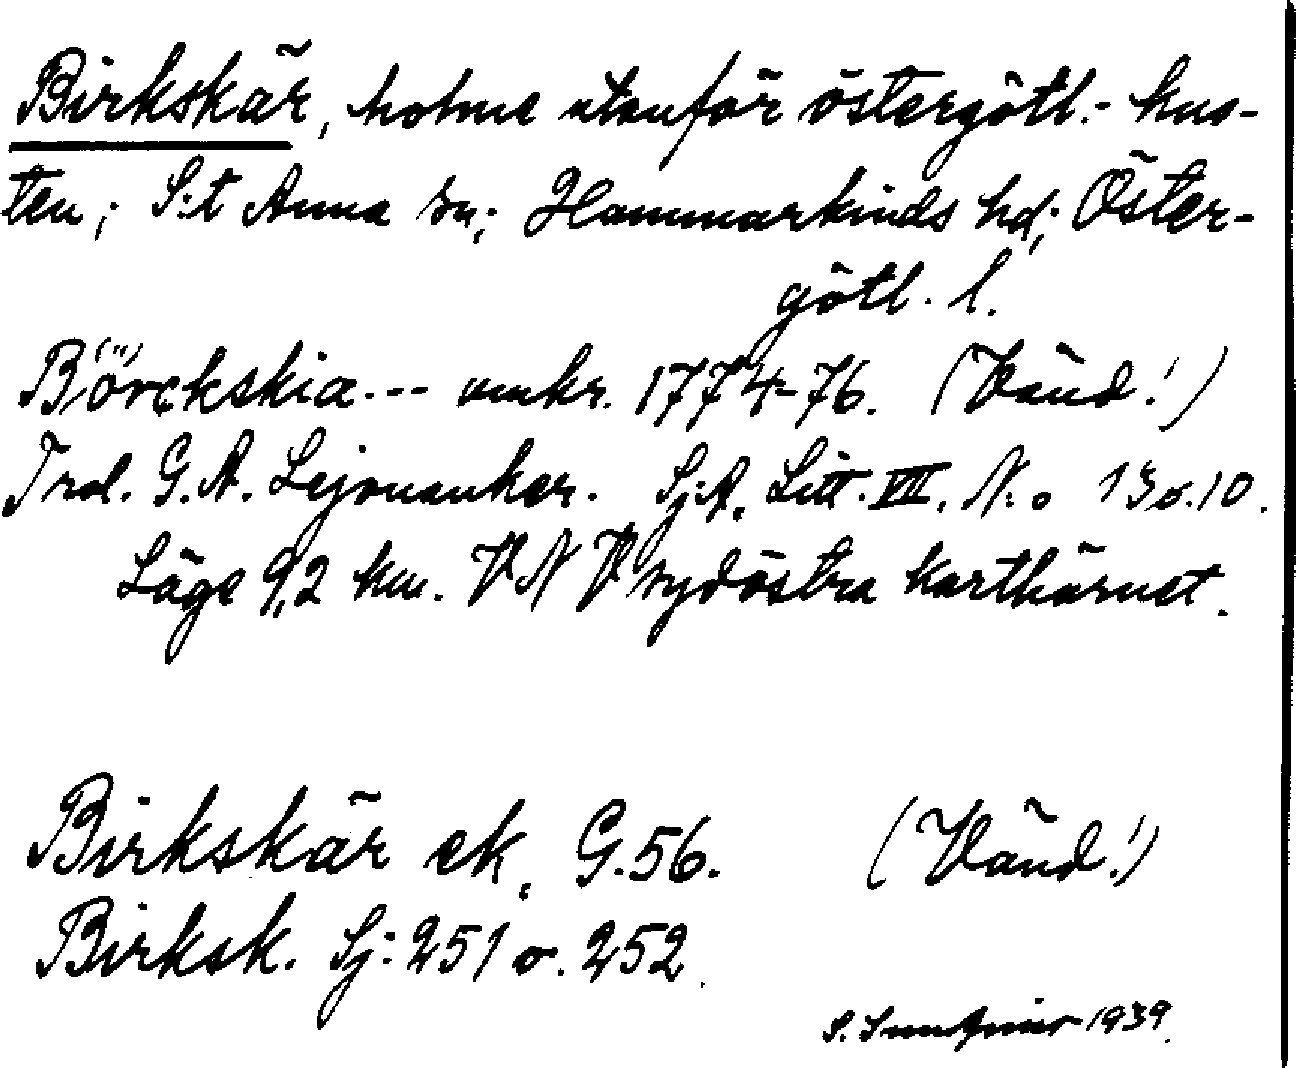 Birkskär, holme utanför östergötl.- kus-
ten; S:t Anna sn; Hammarkinds hd; Öster-
götl. l.
Börckskia.-- omkr. 1774-76. (Vänd!)
Trol. G.A. Lejonanker. Sj.A. Litt. VII. N:o 13 o. 10.
Läge 9,2 km. VNV sydöstra karthörnet.
Birkskär ek. G.56. (Vänd!)
Birksk. Sj: 251 o. 252.
S. 1939.